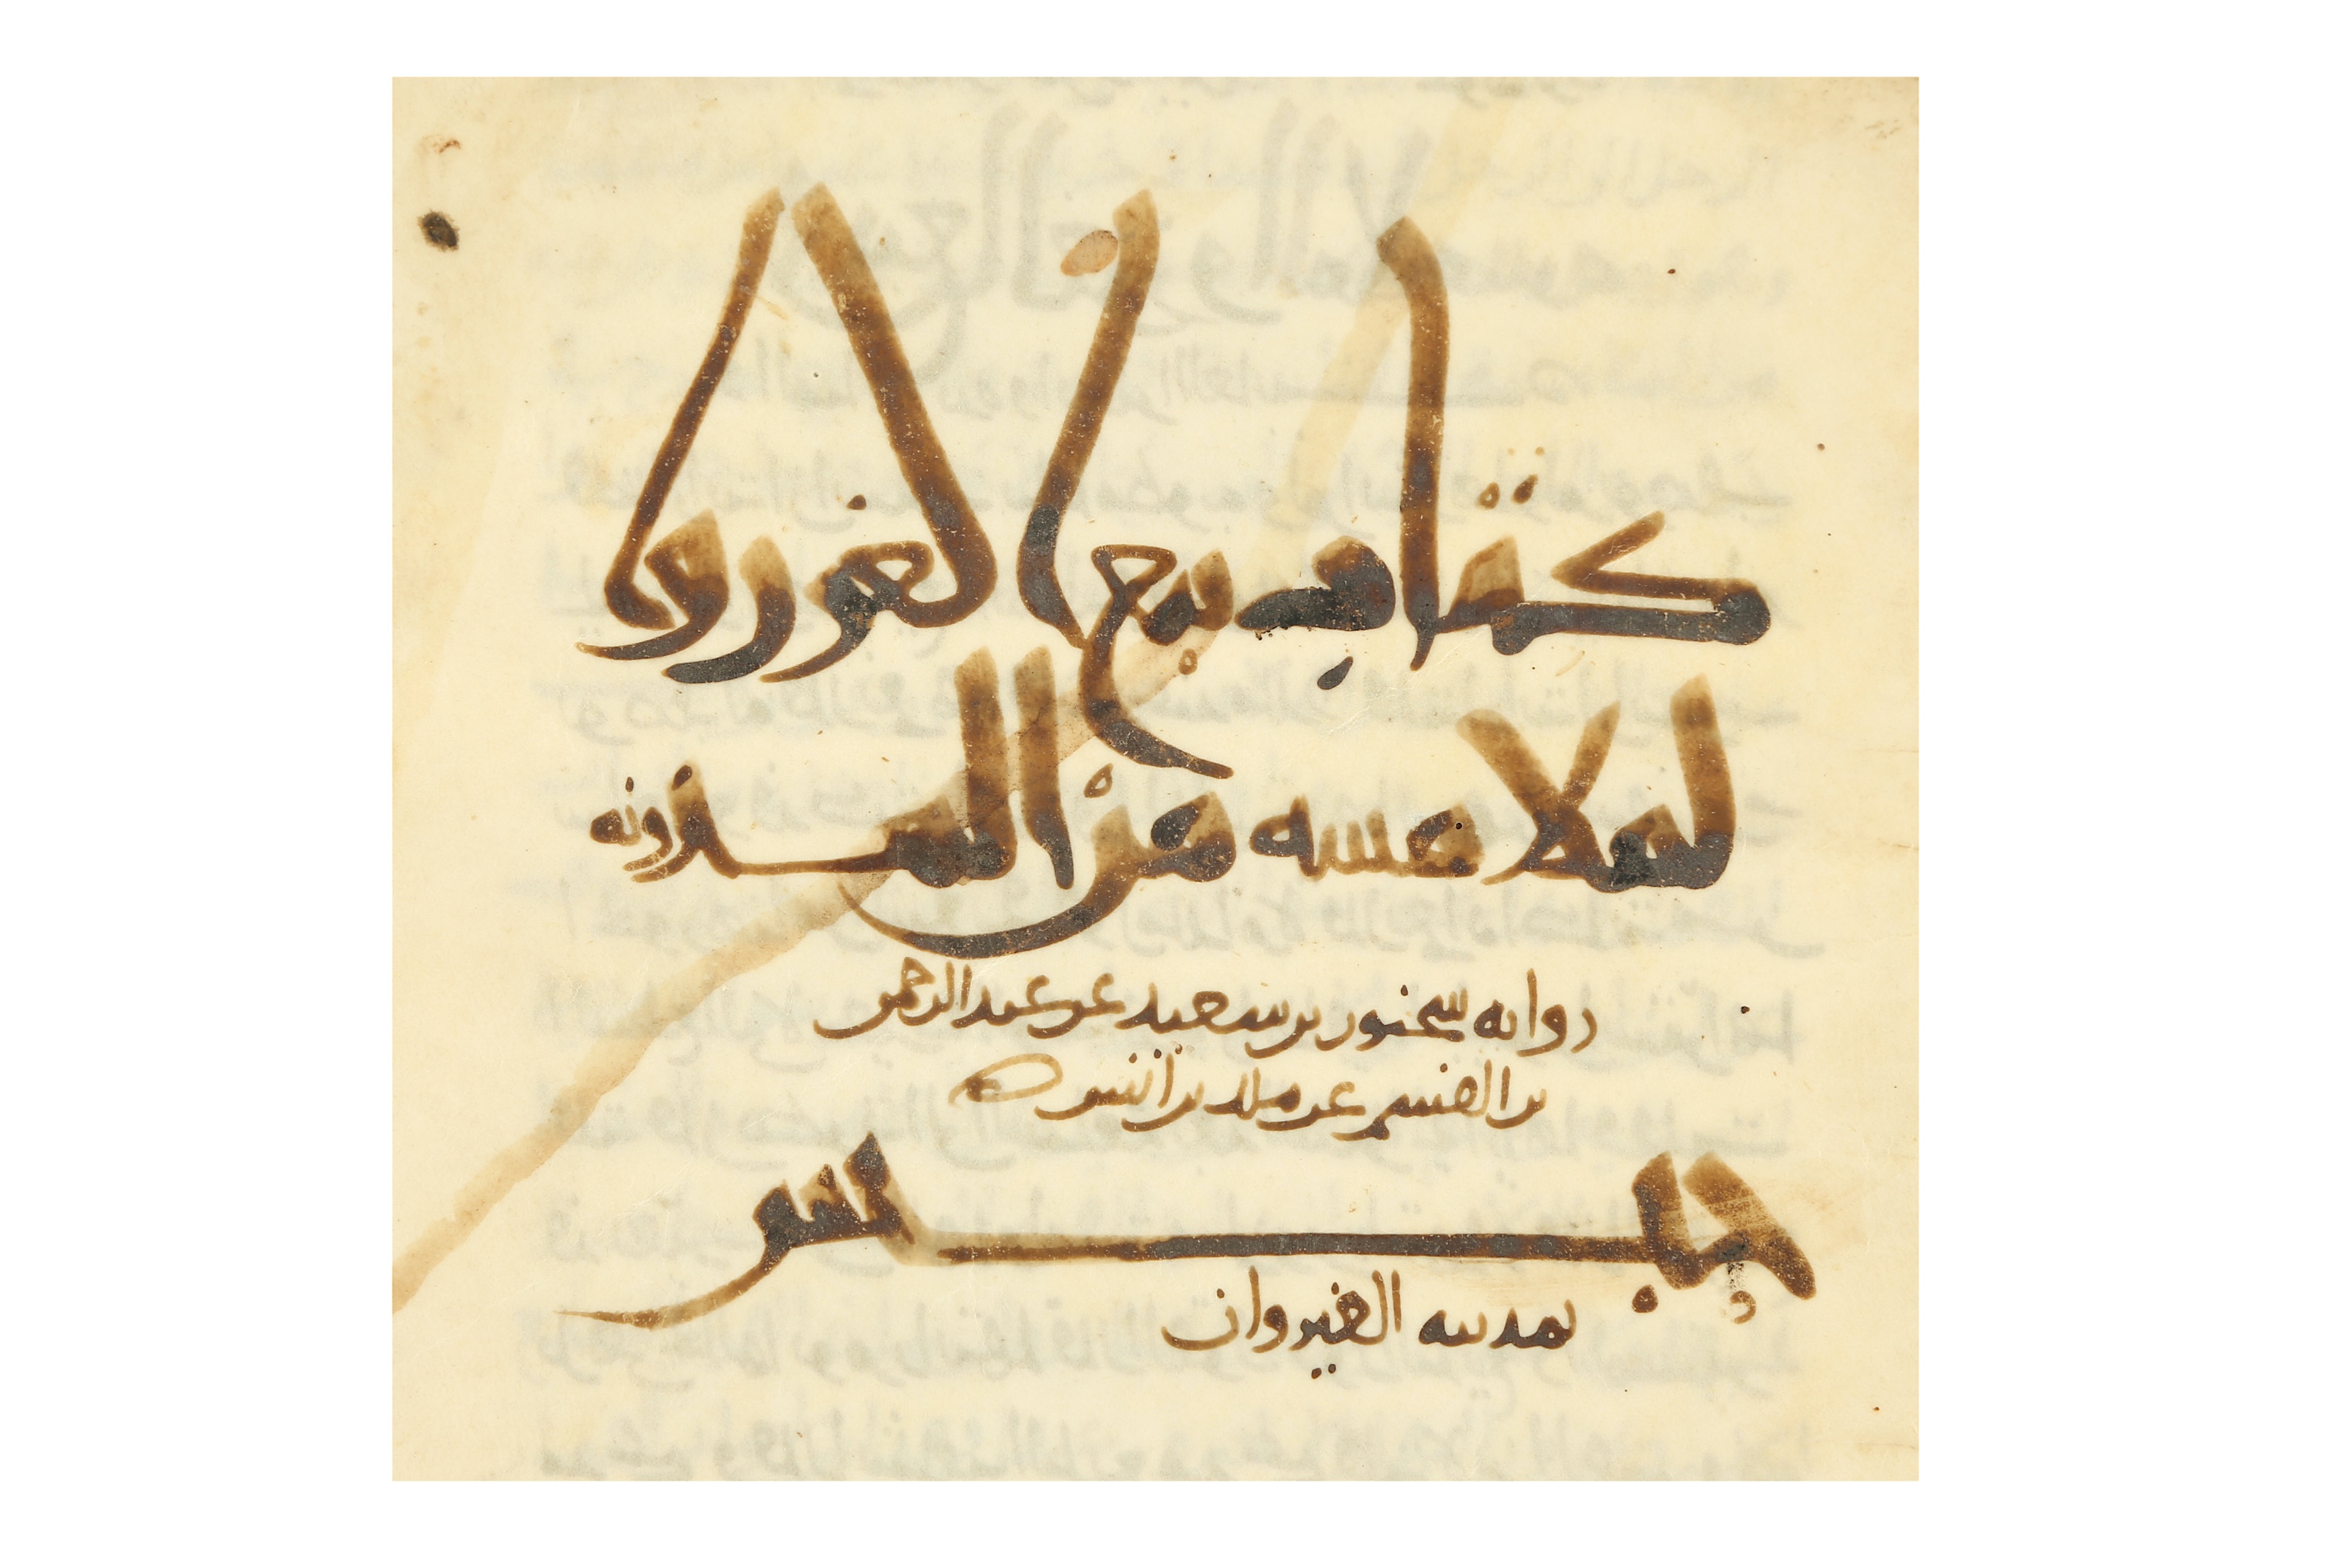 كتاب بيع الغرر وا
لملامسه من المدونه
رواىه سحنون بن سعيد عن عبد الرحمن
بن القسم عن ملك بن انس
حبس
بمدىىه القيروان